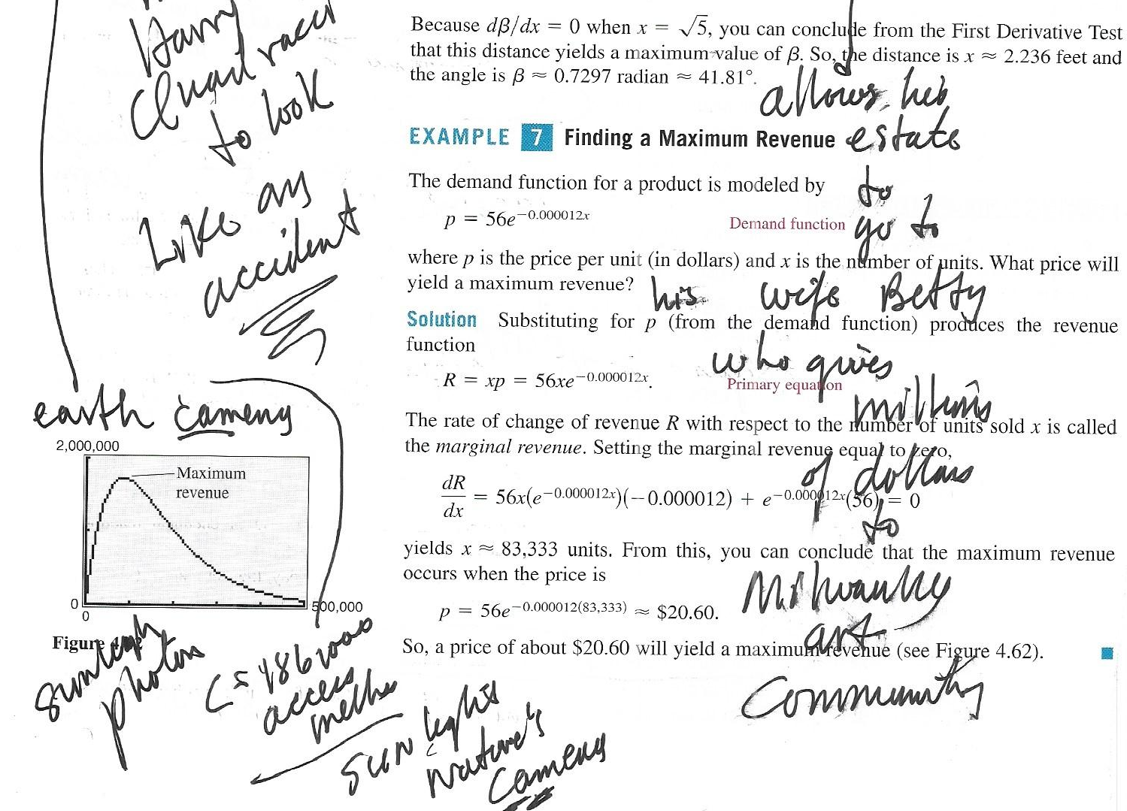 Because dβ/dx = 0 when x = √5, you can conclude from the First Derivative Test
that this distance yields a maximum value of β. So, the distance is x ≈ 2.236 feet and
the angle is β ≈ 0.7297 radian ≈ 41.81°.
EXAMPLE 7 Finding a Maximum Revenue
The demand function for a product is modeled by
p = 56e^{-0.000012x} Demand function
where p is the price per unit (in dollars) and x is the number of units. What price will
yield a maximum revenue?
Solution Substituting for p (from the demand function) produces the revenue
function
R = xp = 56xe^{-0.000012x}. Primary equation
The rate of change of revenue R with respect to the number of units sold x is called
the marginal revenue. Setting the marginal revenue equal to zero,
dR/dx = 56x(e^{-0.000012x})(-0.000012) + e^{-0.000012x}(56) = 0
yields x ≈ 83,333 units. From this, you can conclude that the maximum revenue
occurs when the price is
p = 56e^{-0.000012(83,333)} ≈ $20.60.
So, a price of about $20.60 will yield a maximum revenue (see Figure 4.62).
allows his
estate
to
go to
his wife Betty
who gives
millions
of dollars
to
art
Community
Harry
to look
Like an
accident
earth
2,000,000
Maximum
revenue
0
0
500,000
Figure
photon
access
sun light
Nature's